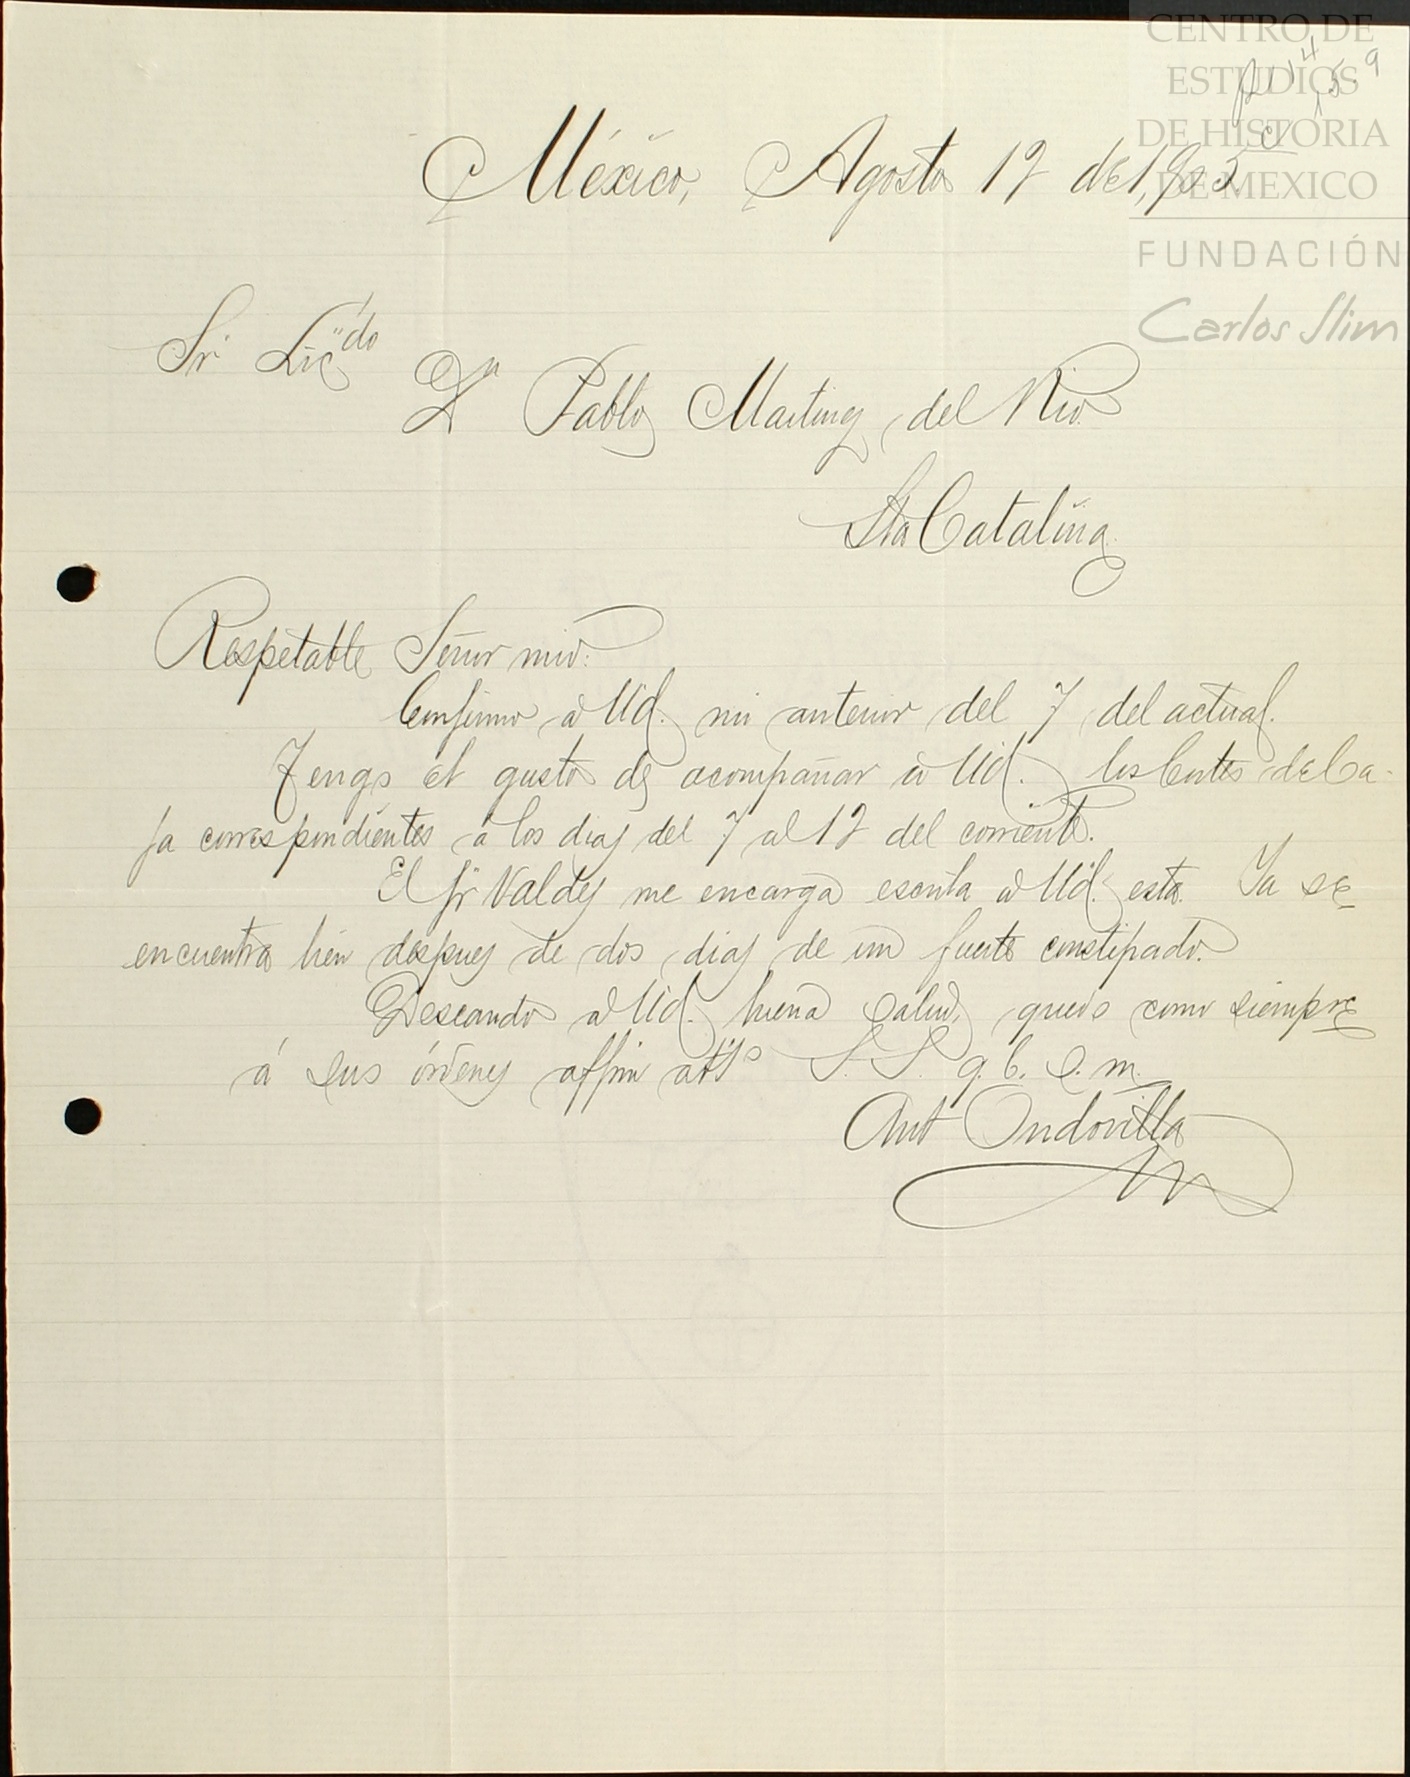 CENTRO DE
ESTUDIOS
DE HISTORIA
DE MEXICO
FUNDACIÓN
Carlos Slim
México, Agosto 12 de 1,905
Sr. Lic.do
Dn Pablo Martinez del Rio.
Sta Catalina.
Respetable Señor mio:
Confirmo á Ud. mi anterior del 7 del actual.
Tengo el gusto de acompañar á Ud. los Cortes de Ca-
ja correspondientes á los dias del 7 al 12 del corriente.
El Sr Valdes me encarga escriba á Ud. esta. Ya se
encuentra bien despues de dos dias de un fuerte constipado.
Deseando á Ud. buena salud, quedo como siempre
á sus órdenes affmo atto S. S. q. b. s. m.
Ant Ondovilla